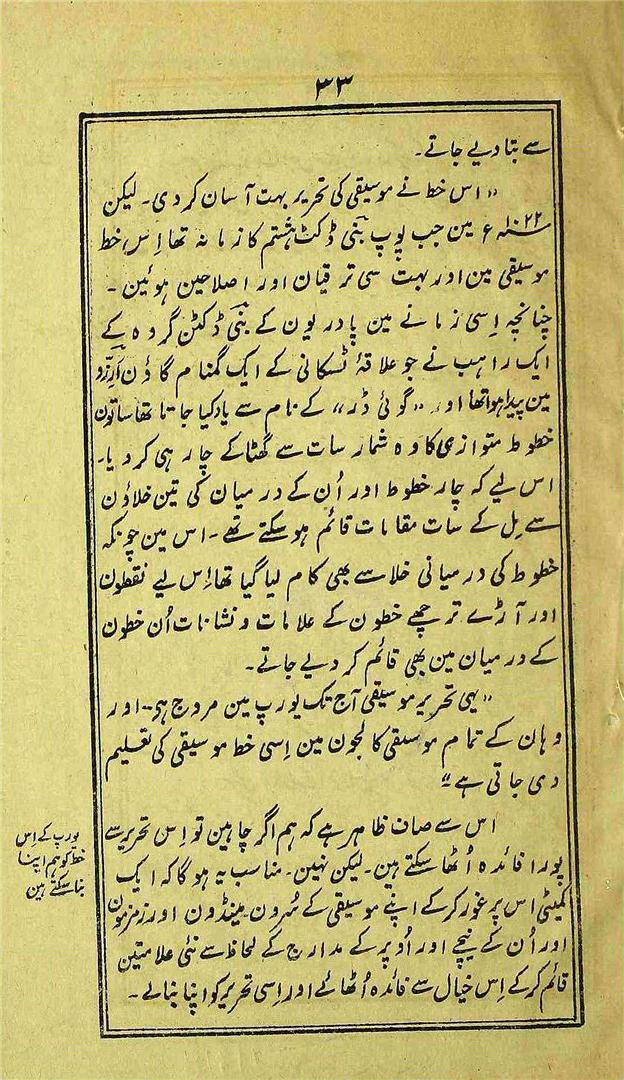 ۳۳
سے بتا دیے جاتے۔
"اس خط نے موسیقی کی تحریر بہت آسان کر دی۔ لیکن
۱۰۲۲ء مین جب پوپ بنی ڈکٹ ہشتم کا زمانہ تھا اِس خط
موسیقی مین اور بہت سی ترقیان اور اصلاحین ہوئین۔
چنانچہ اِسی زمانے مین پادریون کے بنی ڈکٹن گروہ کے
ایک راہب نے جو علاقۂ ٹسکانی کے ایک گمنام گاؤن اَرِزّو
مین پیدا ہوا تھا اور "گوئی ڈر" کے نام سے یاد کیا جاتا تھا ساتون
خطوط متوازی کا وہ شمار سات سے گھٹا کے چار ہی کر دیا۔
اس لیے کہ چار خطوط اور اُن کے درمیان کی تین خلاؤن
سے مل کے سات مقامات قائم ہو سکتے تھے۔ اس مین چونکہ
خطوط کی درمیانی خلا سے بھی کام لیا گیا تھا اِس لیے نقطون
اور آڑے ترچھے خطون کے علامات و نشانات اُن خطون
کے درمیان مین بھی قائم کر دیے جاتے۔
"یہی تحریر موسیقی آج تک یورپ مین مروج ہے۔ اور
وہان کے تمام موسیقی کالجون مین اِسی خط موسیقی کی تعلیم
دی جاتی ہے"
اس سے صاف ظاہر ہے کہ ہم اگر چاہین تو اِس تحریر سے
پورا فائدہ اُٹھا سکتے ہین۔ لیکن نہین۔ مناسب یہ ہوگا کہ ایک
کمیٹی اس پر غور کر کے اپنے موسیقی کے سُرون۔ مینڈون اور زمزمون
اور اُن کے نیچے اور اُوپر کے مدارج کے لحاظ سے نئی علامتین
قائم کر کے اِس خیال سے فائدہ اُٹھائے اور اِسی تحریر کو اپنا بنا لے۔
یورپ کے اِس
خط کو ہم اپنا
بنا سکتے ہین